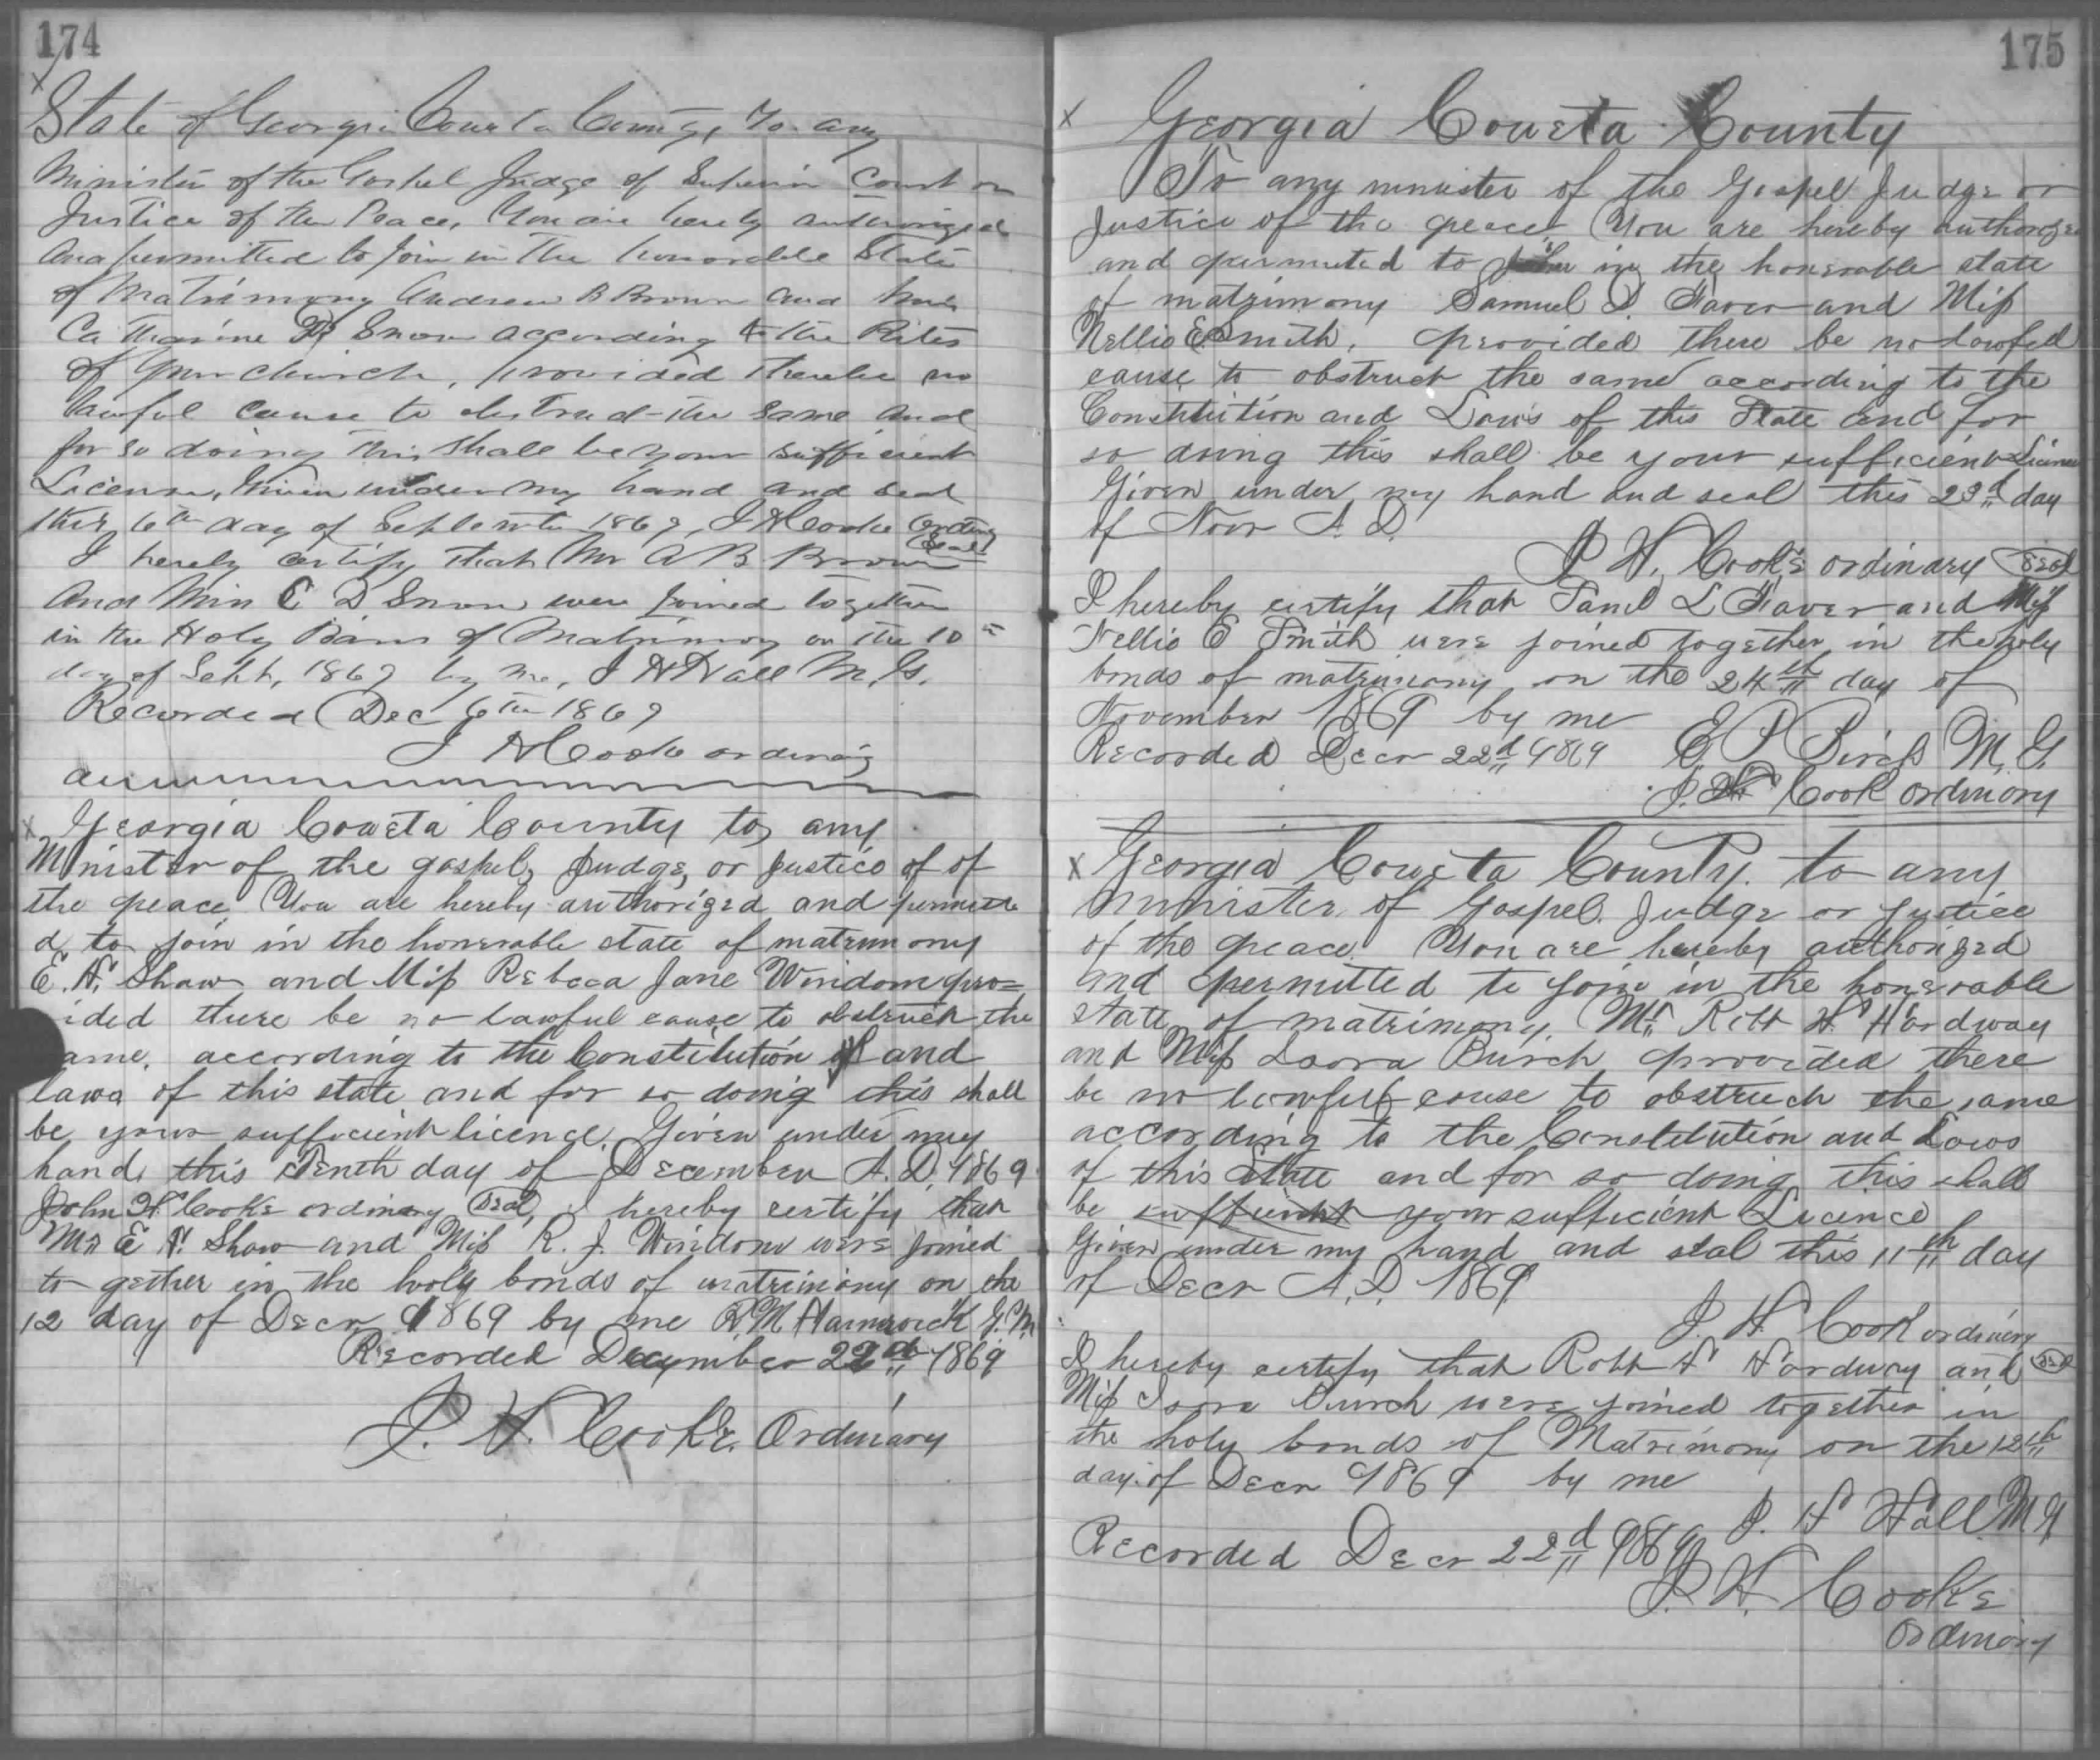 174
State of Georgia Coweta County, To any
Minister of the Gospel Judge of Superior Court or
Justice of the Peace, You are hereby authorized
and permitted to join in the honorable State
of Matrimony Andrew B Brown and Miss
Catharine D Snow according to the Rites
of your church, provided there be no
lawful cause to obstruct the same and
for so doing this shall be your sufficient
License, Given under my hand and seal
this 6th day of September 1869, J H Cooke Ordinary
Seal
I hereby certify that Mr A B Brown
and Miss C D Snow were joined together
in the Holy Bans of Matrimony on the 10th
day of Sept, 1869 by me, J H Hall M.G.
Recorded Dec 6th 1869
J H Cook ordinary
Georgia Coweta County to any
Minister of the gospel, Judge, or Justice of of
the peace You are hereby authorized and permitte
d to join in the honerable state of matrimony
E. N. Shaw and Miss Rebcca Jane Windom pro=
ided there be no lawful cause to obstruct the
ame. according to the Constitution and
laws of this state and for so doing this shall
be your sufficient licence. Given under my
hand this Tenth day of December A. D. 1869
John H Cooke ordinary Seal, I hereby certify that
Mr E N. Shaw and Miss R. J. Windom were joined
to gether in the holy bonds of matrimony on the
12 day of Decr 1869 by me R M Hammock
Recorded December 22d 1869
J. H. Cooke. Ordinary
175
Georgia Coweta County
To any minister of the Gospel Judge or
Justice of the peace You are hereby authorize
and permited to in the honerable state
of matrimony Samuel L. Faver and Miss
Nellie E Smith. provided there be no lawfull
cause to obstruct the same according to the
Constitution and Laws of this State and for
so doing this shall be your sufficient Licence
Given under my hand and seal this 23d day
of Novr A. D.
J. H. Cooke ordinary Seal
I hereby certify that Saml L Faver and Miss
Nellie E Smith were joined together in the holy
bonds of matrimony on the 24th day of
November 1869 by me
Recorded Decr 22d 1869 E P Birch M. G.
J. H Cook ordinary
Georgia Coweta County. to any
minister of Gospel. Judge or Justice
of the peace You are hereby authorized
and permitted to join in the honerable
state of matrimony. Mr Robt H Hardway
and Miss Isora Burch provided there
be no lawfull cause to obstruct the same
according to the Constitution and Laws
of this State and for so doing this shall
be sufficient your sufficient Licence
Given under my hand and seal this 11th day
of Decr A. D. 1869
J. H Cook ordinary
I hereby certify that Robt H Hardway and Seal
Miss Isora Burch were joined together in
the holy bonds of Matrimony on the 12th
day of Decr 1869 by me
J. H Hall. M G
Recorded Decr 22d 1869
J. H. Cooke
Ordinary